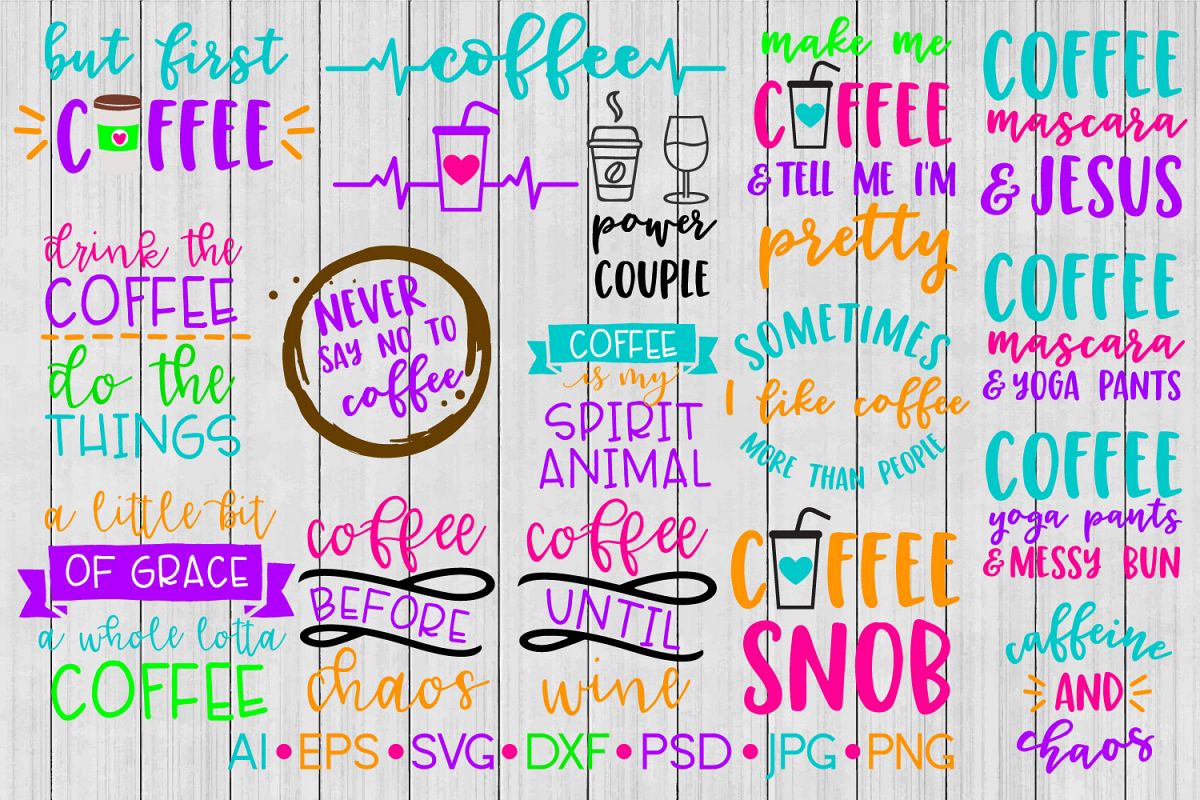 but first
COFFEE
drink the
COFFEE
do the
THINGS
a little bit
OF GRACE
a whole lotta
COFFEE
coffee
NEVER
SAY NO TO
coffee
coffee
BEFORE
chaos
power
COUPLE
COFFEE
is my
SPIRIT
ANIMAL
coffee
UNTIL
wine
make me
COFFEE
& TELL ME I'M
pretty
SOMETIMES
I like coffee
MORE THAN PEOPLE
COFFEE
SNOB
COFFEE
mascara
& JESUS
COFFEE
mascara
& YOGA PANTS
COFFEE
yoga pants
& MESSY BUN
caffeine
AND
chaos
AI•EPS•SVG•DXF•PSD•JPG•PNG